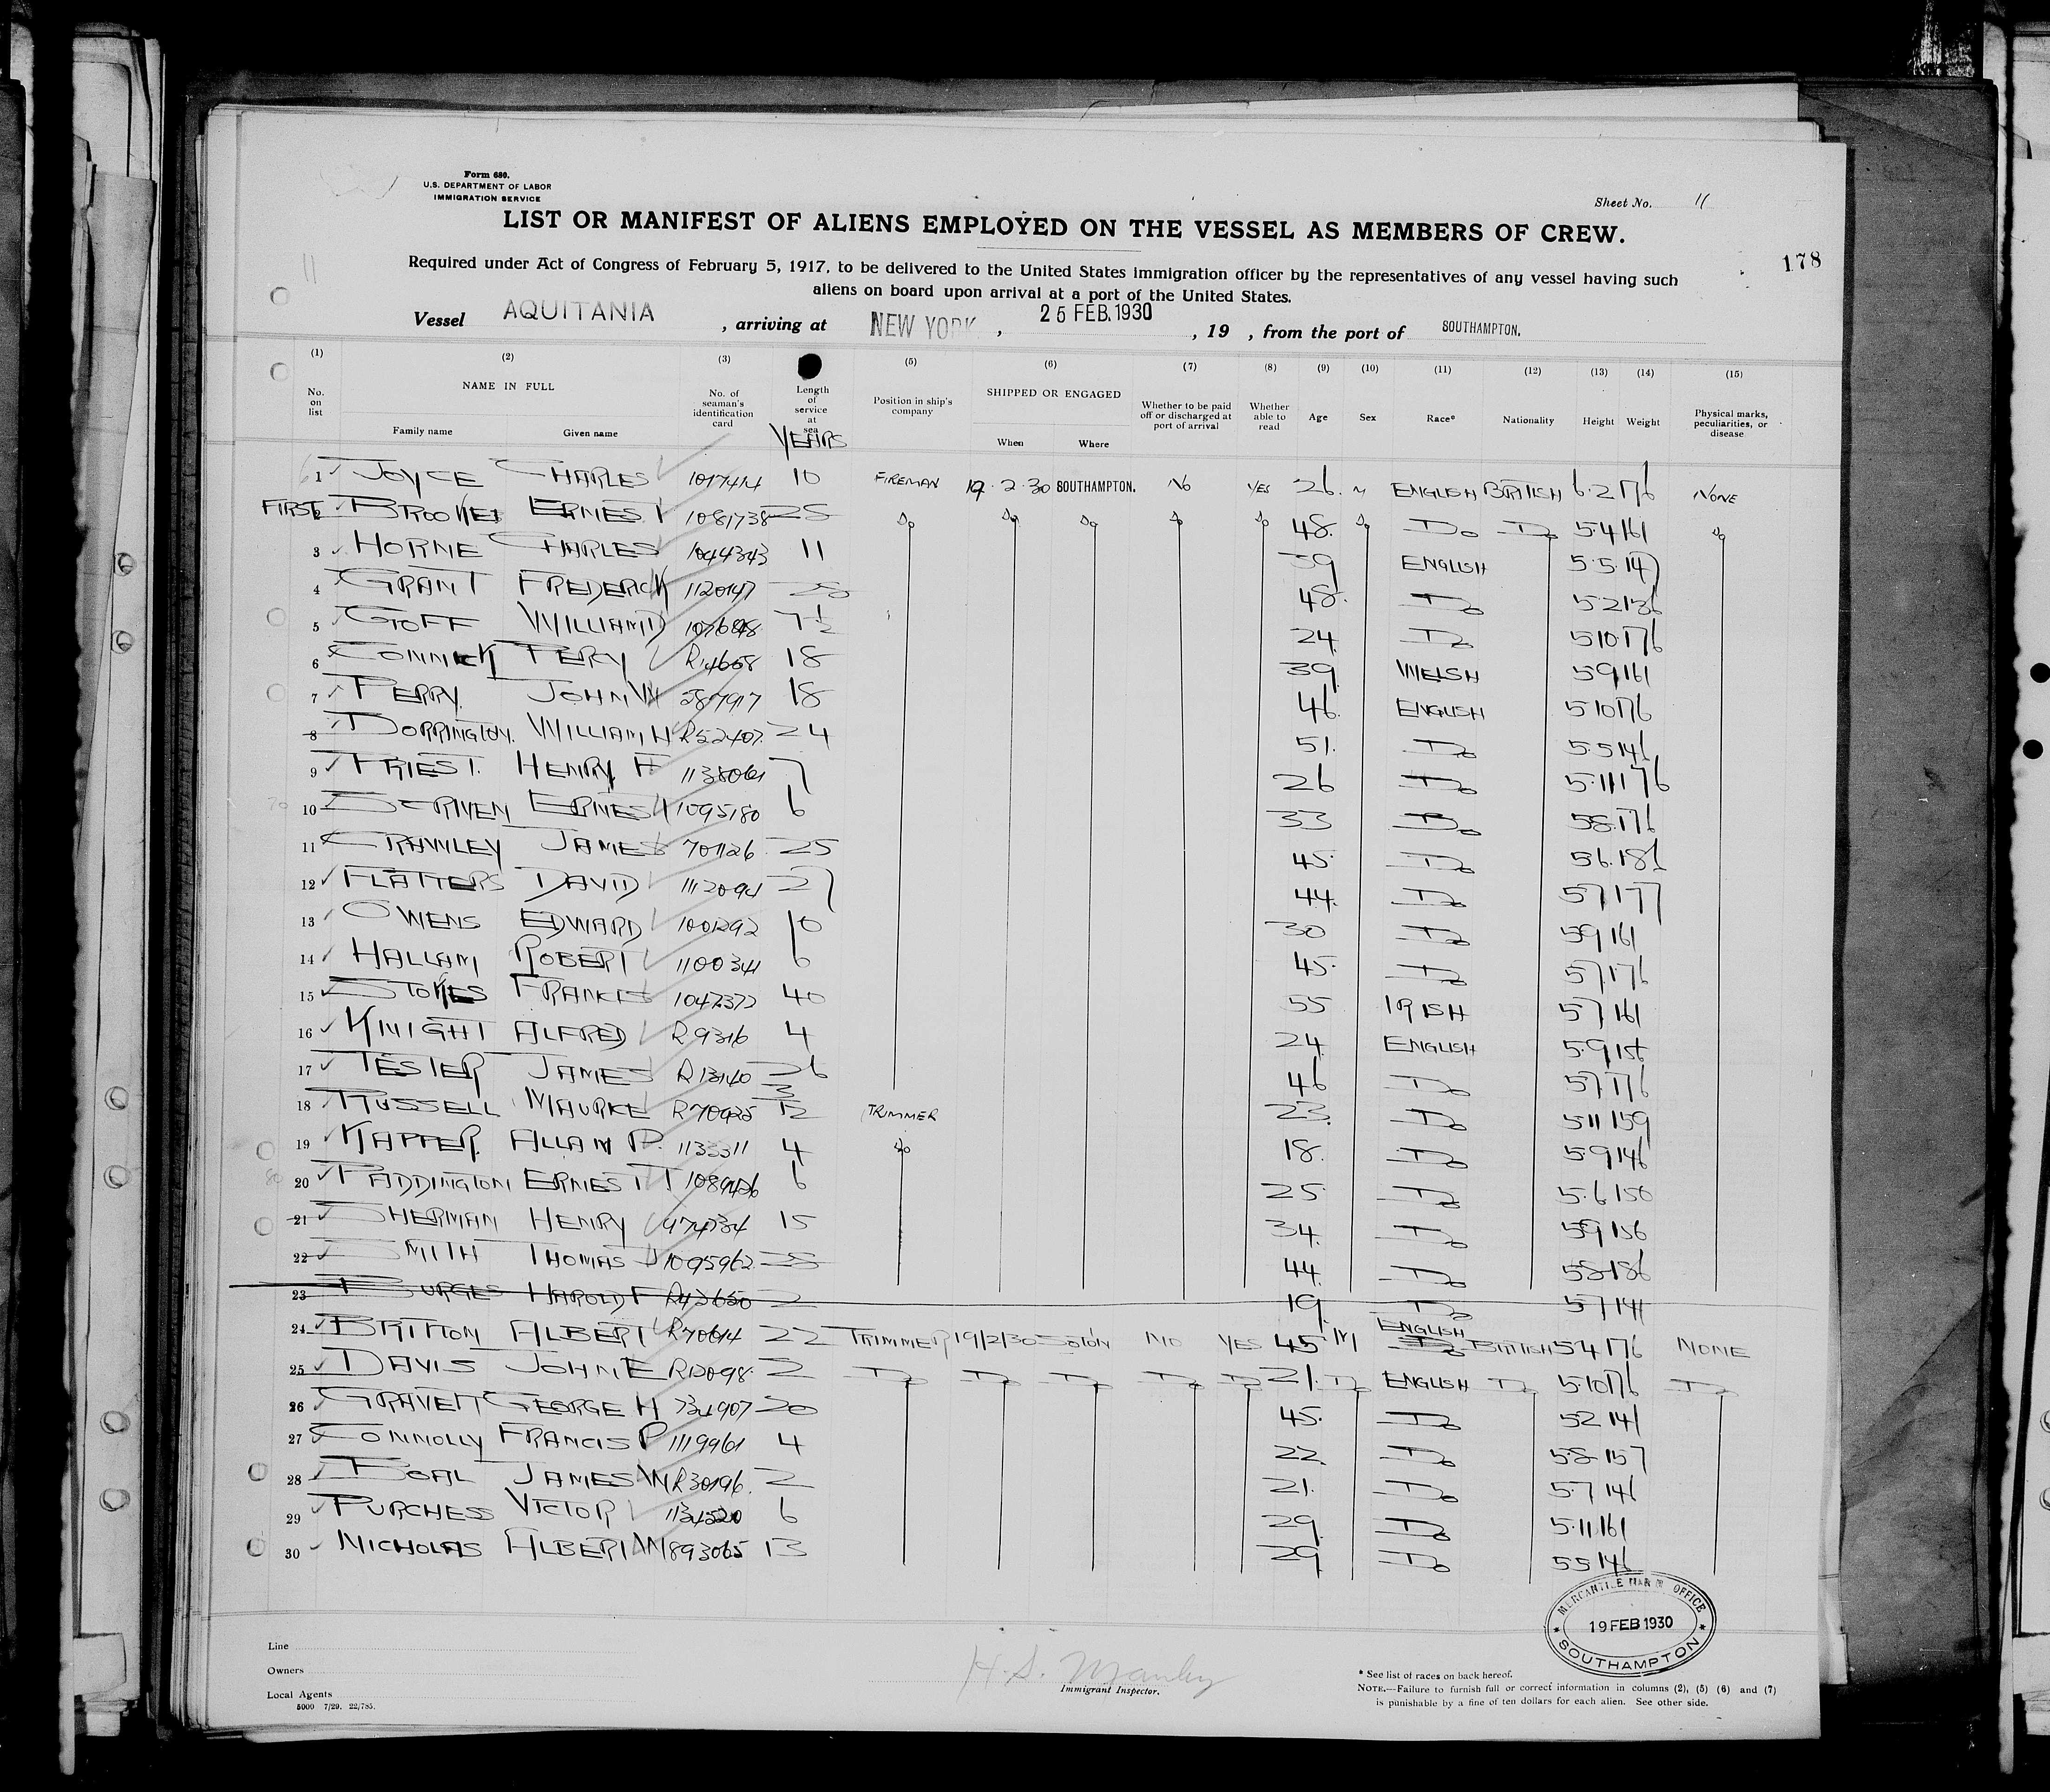 Form 680.
U.S. DEPARTMENT OF LABOR
IMMIGRATION SERVICE
Sheet No. 11
LIST OR MANIFEST OF ALIENS EMPLOYED ON THE VESSEL AS MEMBERS OF CREW.
178
11
Required under Act of Congress of February 5, 1917, to be delivered to the United States immigration officer by the representatives of any vessel having such
aliens on board upon arrival at a port of the United States.
Vessel AQUITANIA , arriving at NEW YORK , 25 FEB. 1930 , 19 , from the port of SOUTHAMPTON.
(1) (2) (3) (5) (6) (7) (8) (9) (10) (11) (12) (13) (14) (15)
No. on list NAME IN FULL Family name Given name No. of seaman's identification card Length of service at sea YEARS Position in ship's company SHIPPED OR ENGAGED When Where Whether to be paid off or discharged at port of arrival Whether able to read Age Sex Race* Nationality Height Weight Physical marks, peculiarities, or disease
1 JOYCE CHARLES 1017414 10 FIREMAN 19.2.30 SOUTHAMPTON. NO YES 26. M ENGLISH BRITISH 6.2 176 NONE
FIRST 2 ERNEST 1081738 25 Do Do Do Do Do 48. Do Do Do 5.4 161 Do
3 HORNE CHARLES 1044343 11 39 ENGLISH 5.5.147
4 GRANT FREDERICK 1120147 28 48. Do 5.2 136
5 GOFF WILLIAM D 7½ 24 Do 5.10.176
6 PERCY 18 39 WELSH 5.9 161
7 PERRY. JOHN W 18 46. ENGLISH 5.10 176
8 DORRINGTON. WILLIAM H R52407. 24 51. Do 5.5 146
9 PRIEST. HENRY F 1138061 7 26 Do 5.11 176
10 SCRIVEN ERNEST 1095180 6 33 Do 5.8.176
11 CRAWLEY JAMES 701126 25 45. Do 5.6.186
12 FLATTERS DAVID 1112094 27 44. Do 5.7 177
13 OWENS EDWARD 1001292 10 30 Do 5.9 161
14 HALLAM ROBERT 1100341 6 45. Do 5.7 176
15 STOKES FRANCIS 40 55 IRISH 5.7 161
16 KNIGHT ALFRED R9316 4 24 ENGLISH 5.9 156
17 TESTER JAMES R13140 26 46 Do 5.7 176
18 RUSSELL MAURICE 3/12 TRIMMER 23. Do 5.11 159
19 ALLAN P. 1133311 4 Do 18. Do 5.9 146
20 PADDINGTON ERNEST T 6 25 Do 5.6 150
21 SHERMAN HENRY 974734 15 34. Do 5.9 156
22 SMITH THOMAS J 1095962 28 44. Do 5.8 186
23 BURGES HAROLD F 2 19. Do 5.7 141
24 BRITTON ALBERT R70614 22 TRIMMER 19/2/30 SOTON NO YES 45 M ENGLISH Do BRITISH 5.4 176 NONE
25 DAVIS JOHN E R12098. 2 Do Do Do Do Do 21. Do ENGLISH Do 5.10 176 Do
26 GRAVETT GEORGE H 734907 20 45. Do 5.2 141
27 CONNOLLY FRANCIS P 1119961 4 22 Do 5.8 157
28 JAMES W R30196. 2 21. Do 5.7 146
29 PURCHESS VICTOR 6 29 Do 5.11 161
30 NICHOLAS ALBERT W 893065 13 29 Do 5.5 146
MERCANTILE MARINE OFFICE
19 FEB 1930
SOUTHAMPTON
Line
Owners
Local Agents
5000 7/29. 22/785.
H. S. Manley
Immigrant Inspector.
* See list of races on back hereof.
NOTE.—Failure to furnish full or correct information in columns (2), (5) (6) and (7)
is punishable by a fine of ten dollars for each alien. See other side.